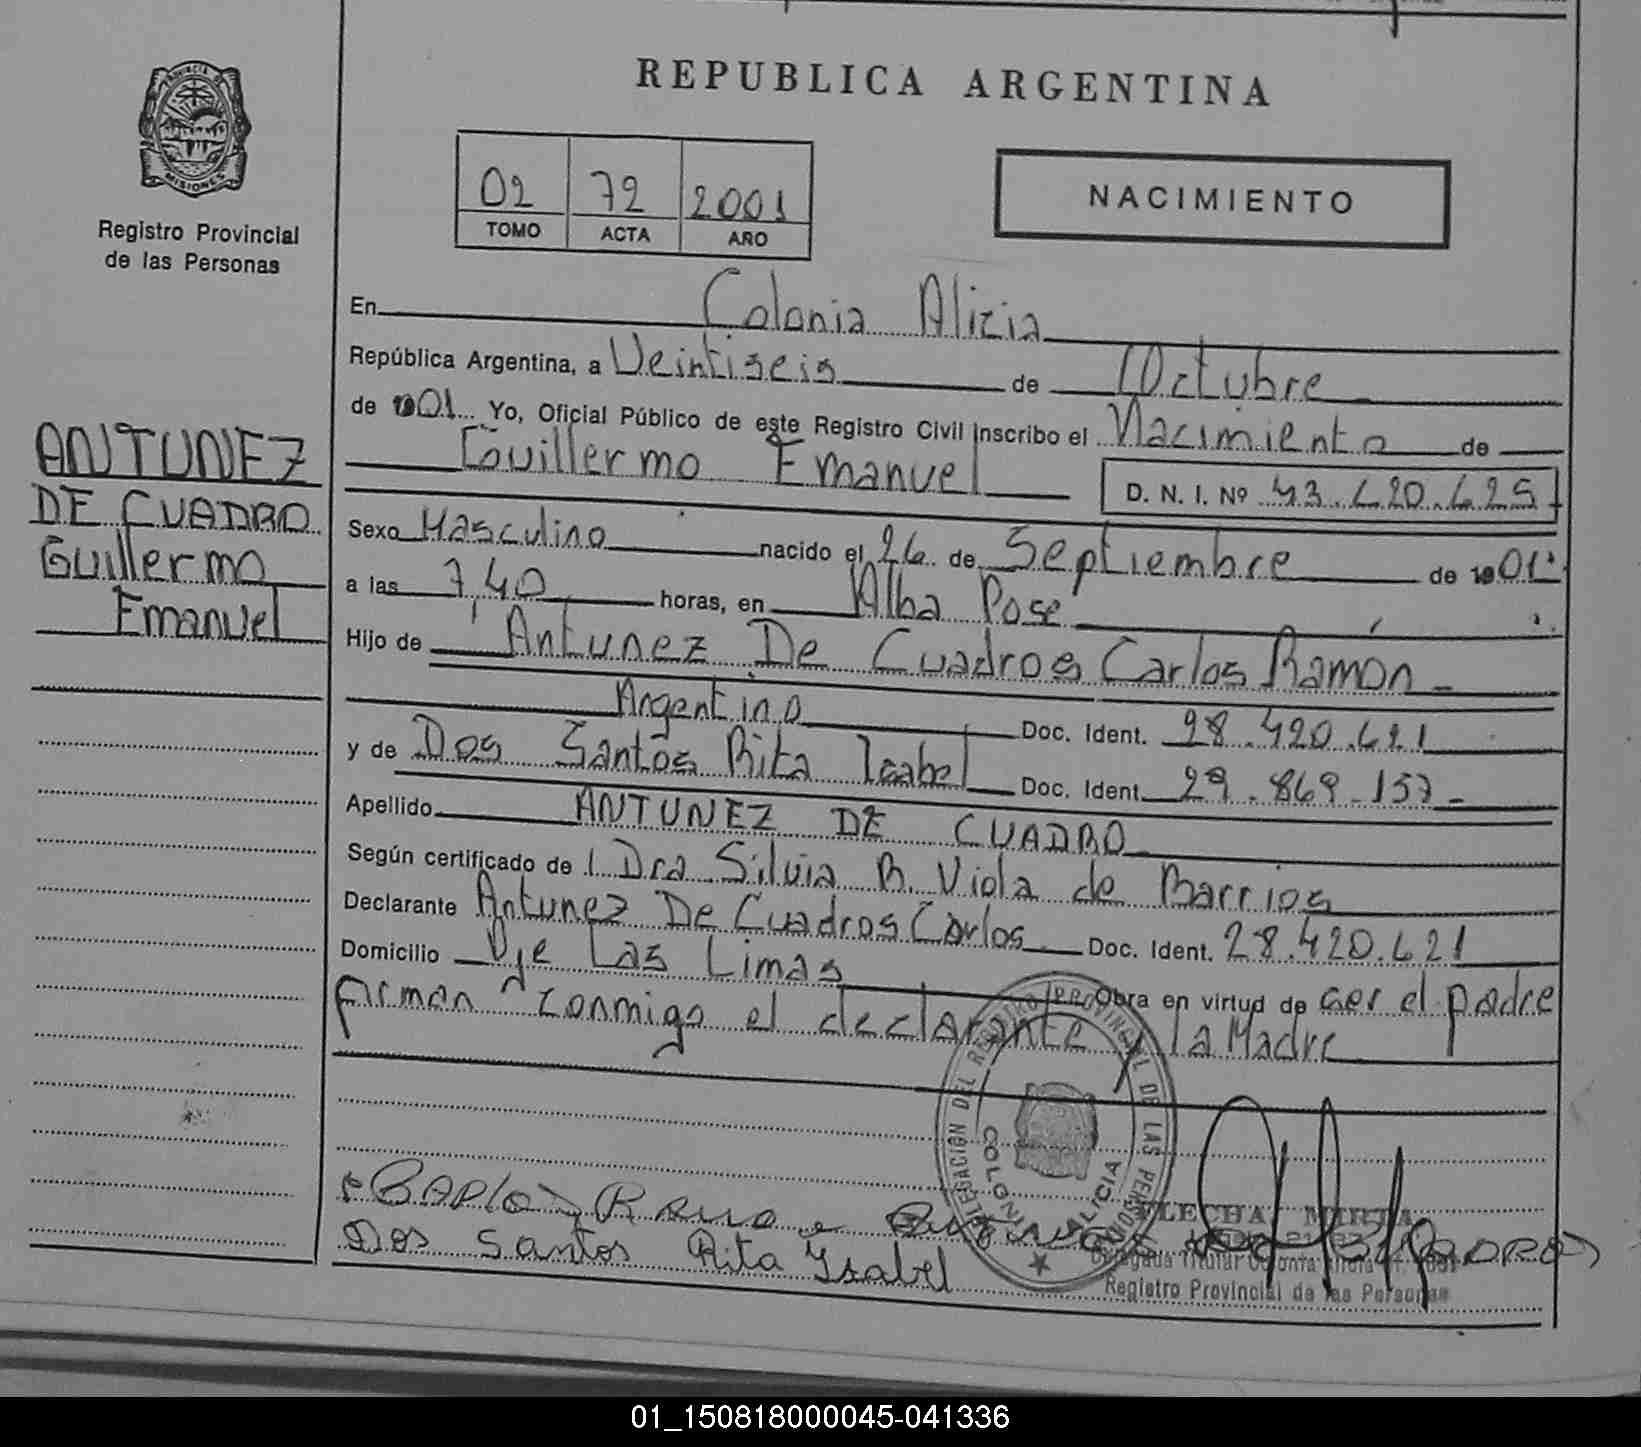 REPUBLICA ARGENTINA
PROVINCIA DE
MISIONES
Registro Provincial
de las Personas
02 72 2001
TOMO ACTA AÑO
NACIMIENTO
En Colonia Alicia
República Argentina, a Veintiseis de Octubre
de 01 Yo, Oficial Público de este Registro Civil inscribo el Nacimiento de
Guillermo Emanuel D. N. I. Nº 43.620.625
ANTUNEZ
DE CUADRO
Guillermo
Emanuel
Sexo Masculino nacido el 26 de Septiembre de 1901
a las 7,40 horas, en Alba Pose
Hijo de Antunez De Cuadros Carlos Ramon
Argentino Doc. Ident. 28.420.621
y de Dos Santos Rita Isabel Doc. Ident. 29.869.157
Apellido ANTUNEZ DE CUADRO
Según certificado de Dra Silvia B. Viola de Barrios
Declarante Antunez De Cuadros Carlos Doc. Ident. 28.420.621
Domicilio Pje Las Limas Obra en virtud de ser el padre
firman conmigo el declarante y la Madre
DELEGACIÓN DEL REGISTRO PROVINCIAL DE LAS PERSONAS
COLONIA ALICIA
FLECHA, MIRTA
Dos Santos Rita Ysabel
Delegada Titular Colonia Alicia
Registro Provincial de las Personas
01_150818000045-041336